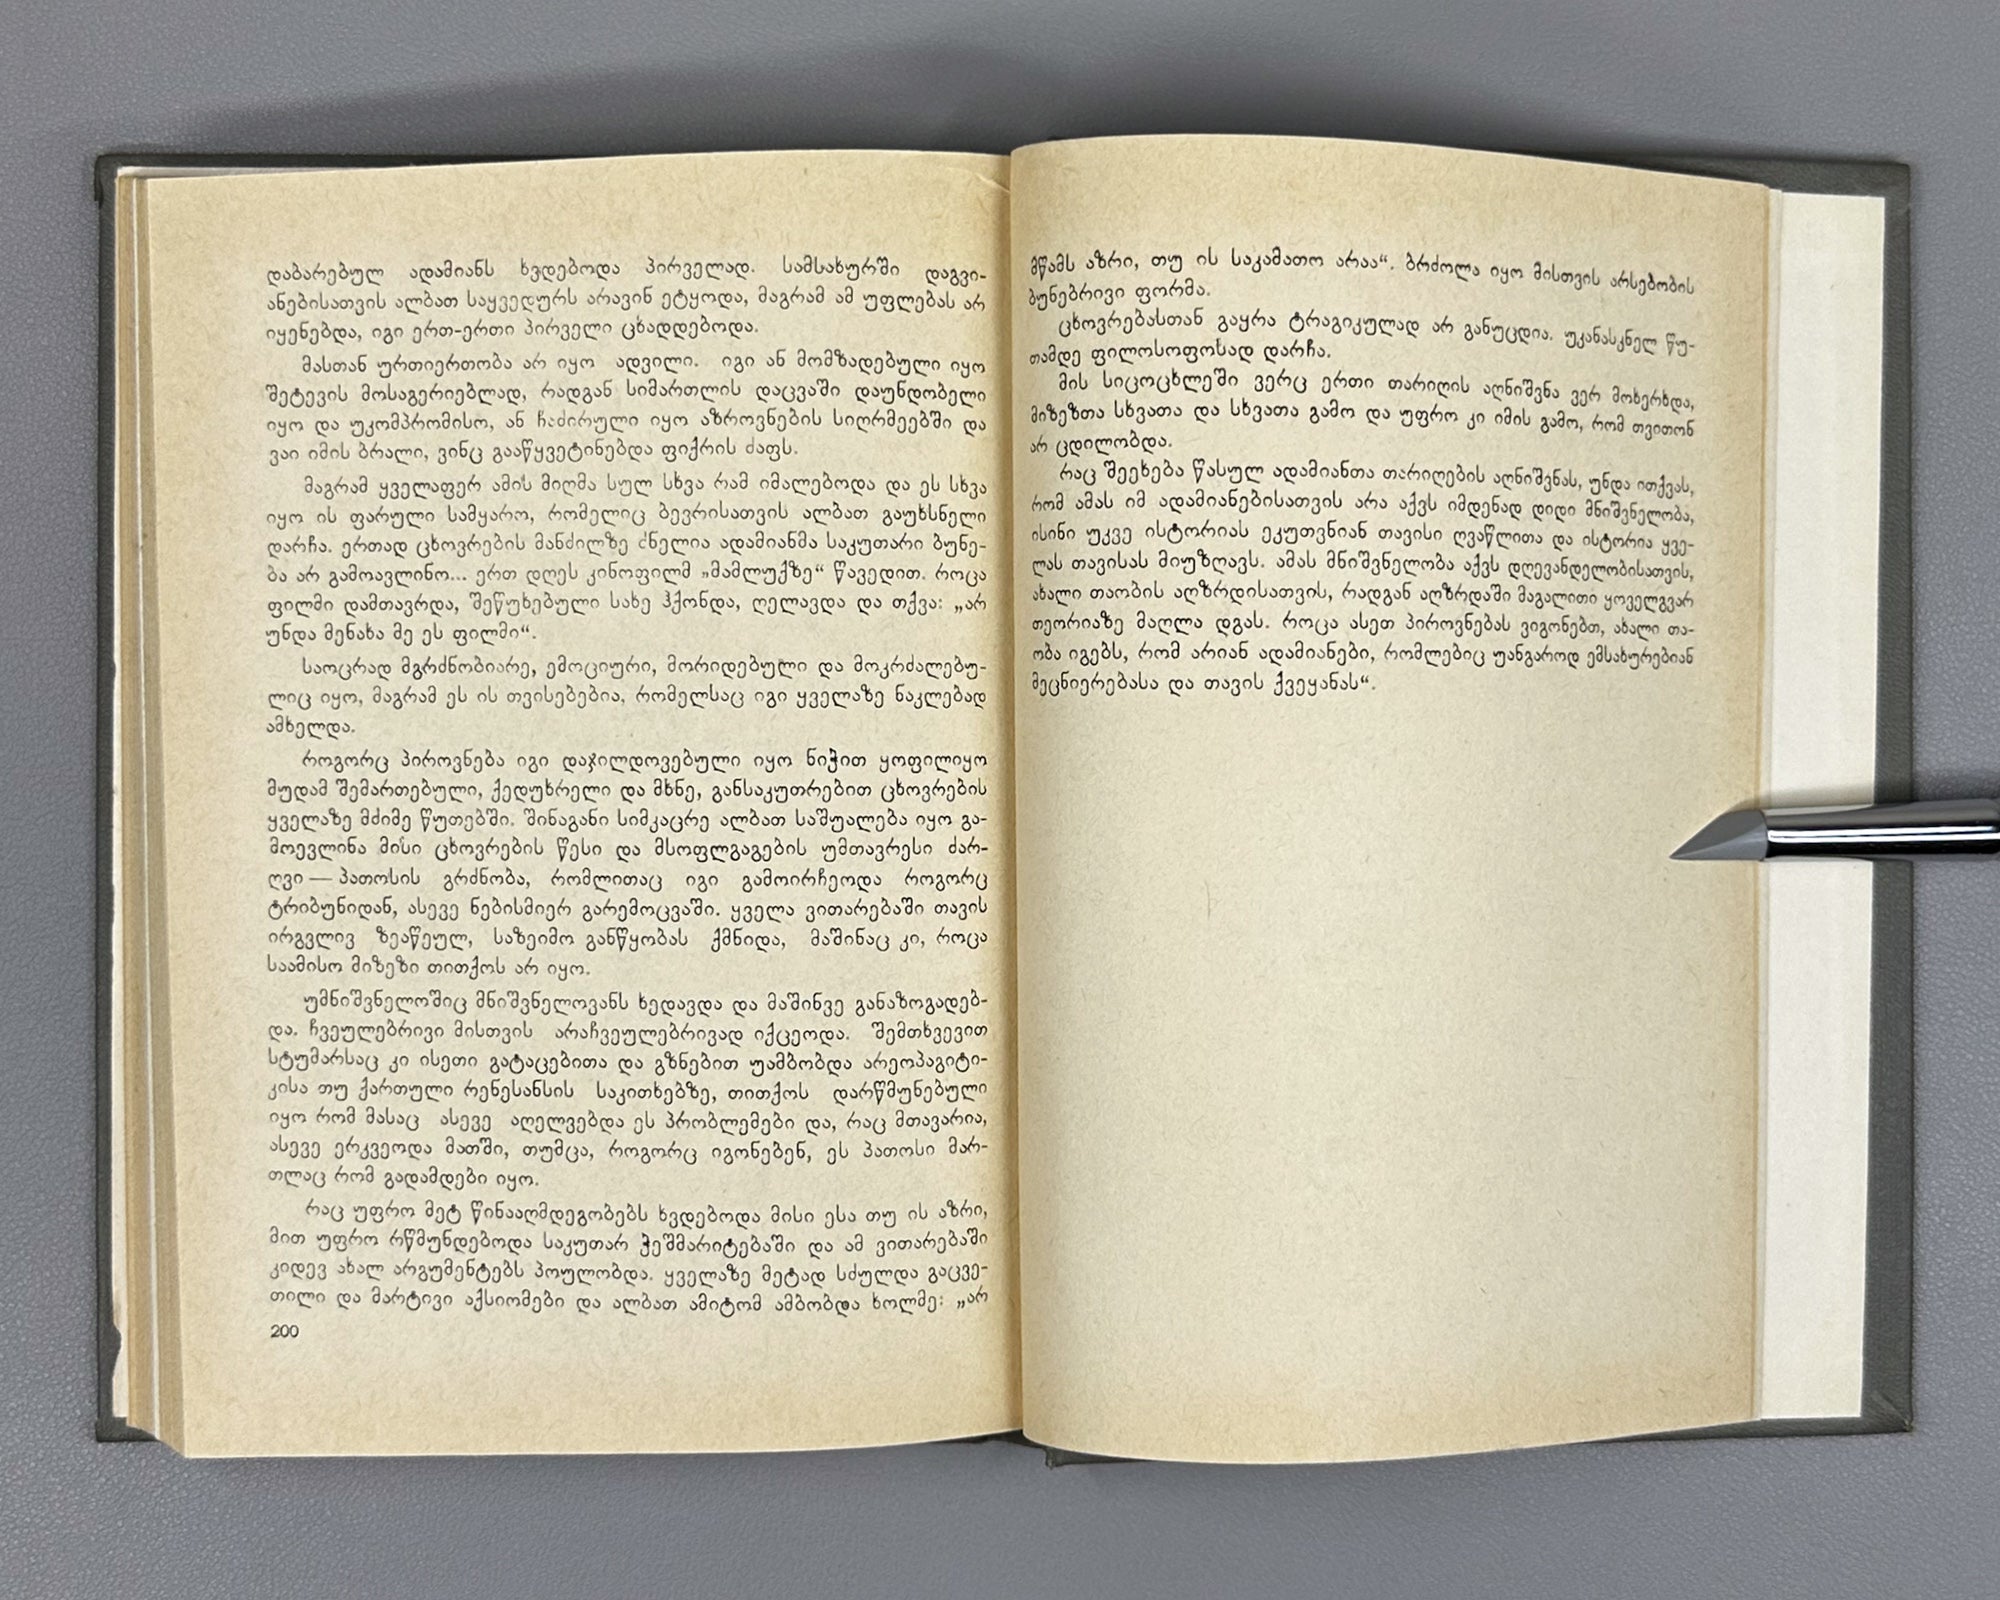 დაბარებულ ადამიანს ხვდებოდა პირველად. სამსახურში დაგვი-
ანებისათვის ალბათ საყვედურს არავინ ეტყოდა, მაგრამ ამ უფლებას არ
იყენებდა, იგი ერთ-ერთი პირველი ცხადდებოდა.
მასთან ურთიერთობა არ იყო ადვილი. იგი ან მომზადებული იყო
შეტევის მოსაგერიებლად, რადგან სიმართლის დაცვაში დაუნდობელი
იყო და უკომპრომისო, ან ჩაძირული იყო აზროვნების სიღრმეებში და
ვაი იმის ბრალი, ვინც გააწყვეტინებდა ფიქრის ძაფს.
მაგრამ ყველაფერ ამის მიღმა სულ სხვა რამ იმალებოდა და ეს სხვა
იყო ის ფარული სამყარო, რომელიც ბევრისათვის ალბათ გაუხსნელი
დარჩა. ერთად ცხოვრების მანძილზე ძნელია ადამიანმა საკუთარი ბუნე-
ბა არ გამოავლინო... ერთ დღეს კინოფილმ „მამლუქზე“ წავედით. როცა
ფილმი დამთავრდა, შეწუხებული სახე ჰქონდა, ღელავდა და თქვა: „არ
უნდა მენახა მე ეს ფილმი“.
საოცრად მგრძნობიარე, ემოციური, მორიდებული და მოკრძალებუ-
ლიც იყო, მაგრამ ეს ის თვისებებია, რომელსაც იგი ყველაზე ნაკლებად
ამხელდა.
როგორც პიროვნება იგი დაჯილდოვებული იყო ნიჭით ყოფილიყო
მუდამ შემართებული, ქედუხრელი და მხნე, განსაკუთრებით ცხოვრების
ყველაზე მძიმე წუთებში. შინაგანი სიმკაცრე ალბათ საშუალება იყო გა-
მოევლინა მისი ცხოვრების წესი და მსოფლგაგების უმთავრესი ძარ-
ღვი — პათოსის გრძნობა, რომლითაც იგი გამოირჩეოდა როგორც
ტრიბუნიდან, ასევე ნებისმიერ გარემოცვაში. ყველა ვითარებაში თავის
ირგვლივ ზეაწეულ, საზეიმო განწყობას ქმნიდა, მაშინაც კი, როცა
საამისო მიზეზი თითქოს არ იყო.
უმნიშვნელოშიც მნიშვნელოვანს ხედავდა და მაშინვე განაზოგადებ-
და. ჩვეულებრივი მისთვის არაჩვეულებრივად იქცეოდა. შემთხვევით
სტუმარსაც კი ისეთი გატაცებითა და გზნებით უამბობდა არეოპაგიტი-
კისა თუ ქართული რენესანსის საკითხებზე, თითქოს დარწმუნებული
იყო რომ მასაც ასევე აღელვებდა ეს პრობლემები და, რაც მთავარია,
ასევე ერკვეოდა მათში, თუმცა, როგორც იგონებენ, ეს პათოსი მარ-
თლაც რომ გადამდები იყო.
რაც უფრო მეტ წინააღმდეგობებს ხვდებოდა მისი ესა თუ ის აზრი,
მით უფრო რწმუნდებოდა საკუთარ ჭეშმარიტებაში და ამ ვითარებაში
კიდევ ახალ არგუმენტებს პოულობდა. ყველაზე მეტად სძულდა გაცვე-
თილი და მარტივი აქსიომები და ალბათ ამიტომ ამბობდა ხოლმე: „არ
200
მწამს აზრი, თუ ის საკამათო არაა“. ბრძოლა იყო მისთვის არსებობის
ბუნებრივი ფორმა.
ცხოვრებასთან გაყრა ტრაგიკულად არ განუცდია. უკანასკნელ წუ-
თამდე ფილოსოფოსად დარჩა.
მის სიცოცხლეში ვერც ერთი თარიღის აღნიშვნა ვერ მოხერხდა,
მიზეზთა სხვათა და სხვათა გამო და უფრო კი იმის გამო, რომ თვითონ
არ ცდილობდა.
რაც შეეხება წასულ ადამიანთა თარიღების აღნიშვნას, უნდა ითქვას,
რომ ამას იმ ადამიანებისათვის არა აქვს იმდენად დიდი მნიშვნელობა,
ისინი უკვე ისტორიას ეკუთვნიან თავისი ღვაწლითა და ისტორია ყვე-
ლას თავისას მიუზღავს. ამას მნიშვნელობა აქვს დღევანდელობისათვის,
ახალი თაობის აღზრდისათვის, რადგან აღზრდაში მაგალითი ყოველგვარ
თეორიაზე მაღლა დგას. როცა ასეთ პიროვნებას ვიგონებთ, ახალი თა-
ობა იგებს, რომ არიან ადამიანები, რომლებიც უანგაროდ ემსახურებიან
მეცნიერებასა და თავის ქვეყანას“.